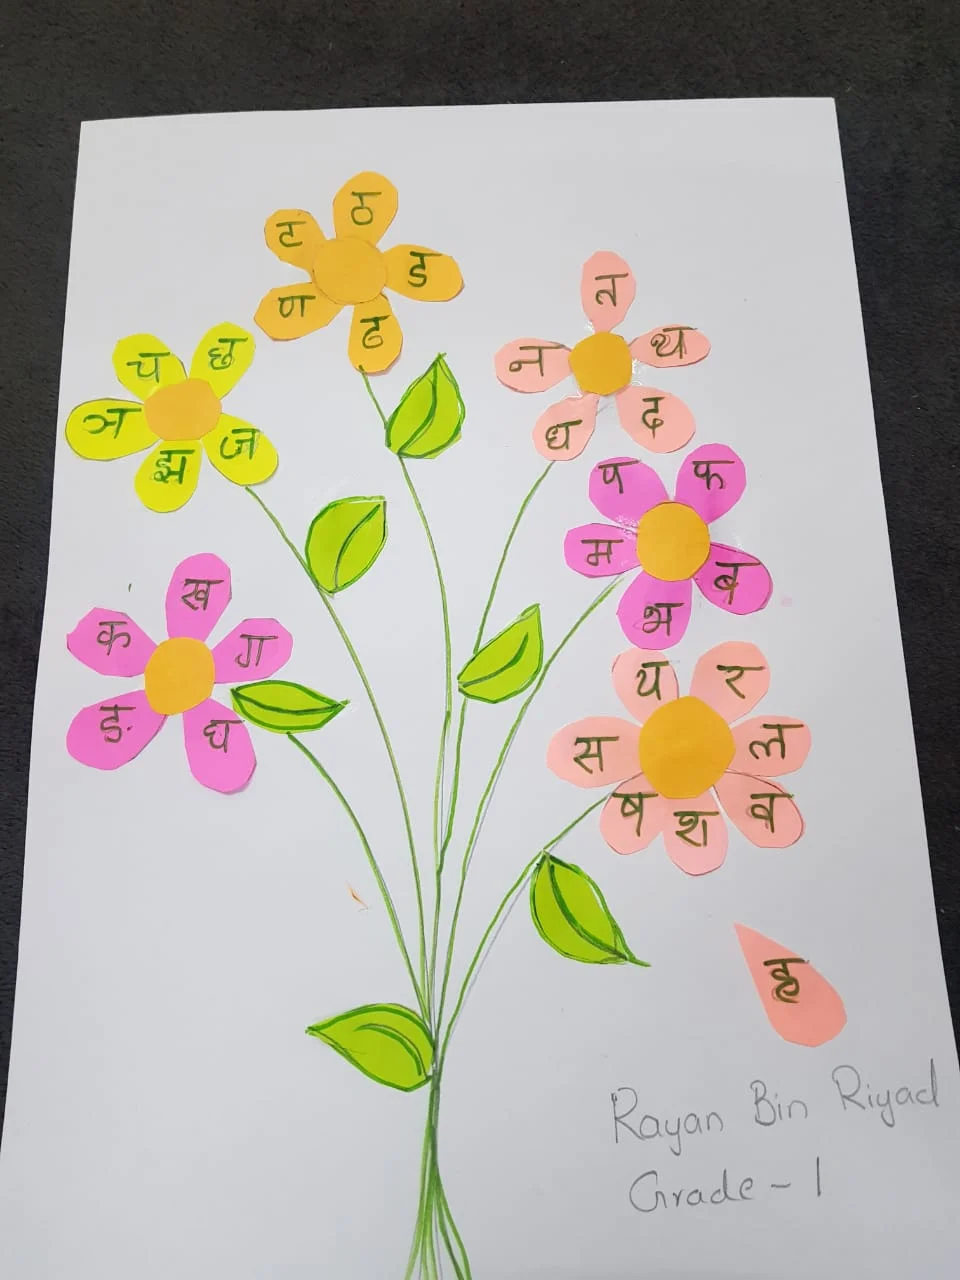 क ख ग घ ङ
च छ ज झ ञ
ट ठ ड ढ ण
त थ द ध न
प फ ब भ म
य र ल व श ष स
ह
Rayan Bin Riyad
Grade - 1